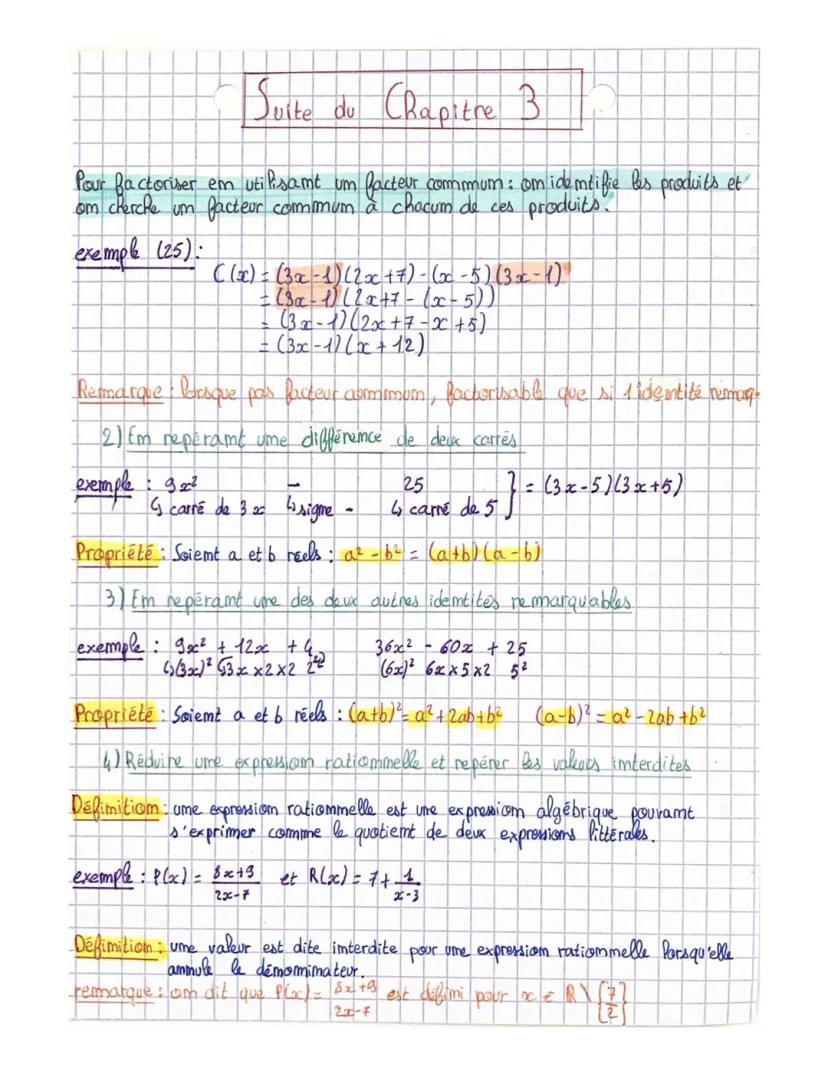 Suite du Chapitre 3
Pour factoriser en utilisant un facteur commun : on identifie les produits et
on cherche un facteur commun à chacun de ces produits.
exemple (25) :
C(x) = (3x-1)(2x+7) - (x-5)(3x-1)
= (3x-1)(2x+7-(x-5))
= (3x-1)(2x+7-x+5)
= (3x-1)(x+12)
Remarque : lorsque pas facteur commun, factorisable que si 1 identité remarq.
2) En repérant une différence de deux carrés
exemple : 9x² - 25 } = (3x-5)(3x+5)
↳ carré de 3x ↳ signe - ↳ carré de 5
Propriété : Soient a et b réels : a² - b² = (a+b)(a-b)
3) En repérant une des deux autres identités remarquables
exemple : 9x² + 12x + 4 36x² - 60x + 25
↳(3x)² ↳3x×2×2 2² (6x)² 6x×5×2 5²
Propriété : Soient a et b réels : (a+b)² = a² + 2ab + b² (a-b)² = a² - 2ab + b²
4) Réduire une expression rationnelle et repérer les valeurs interdites
Définition : une expression rationnelle est une expression algébrique pouvant
s'exprimer comme le quotient de deux expressions littérales.
exemple : P(x) = 8x+9 / 2x-7 et R(x) = 7 + 1 / x-3
Définition : une valeur est dite interdite pour une expression rationnelle lorsqu'elle
annule le dénominateur.
remarque : on dit que P(x) = 8x+9 / 2x-7 est défini pour x ∈ R \ {7/2}